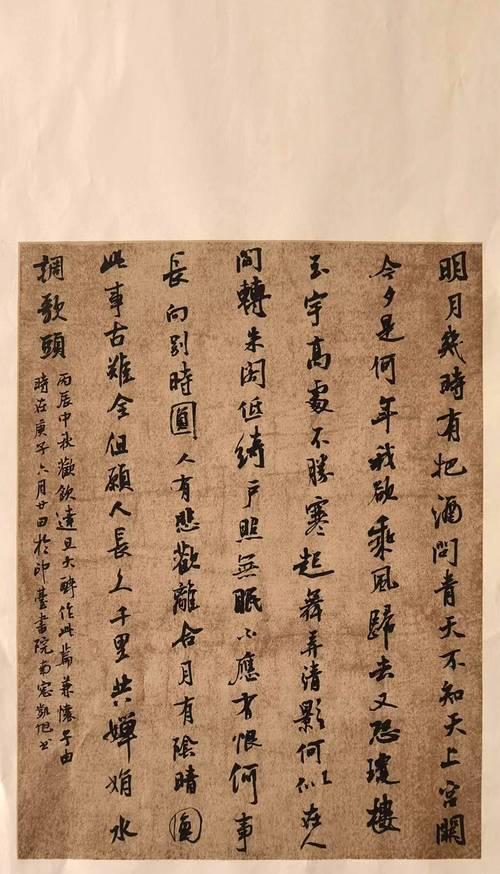 明月幾時有把酒問青天不知天上宮闕
今夕是何年我欲乘風歸去又恐瓊樓
玉宇高處不勝寒起舞弄清影何似在人
間轉朱閣低綺戶照無眠不應有恨何事
長向別時圓人有悲歡離合月有陰晴圓
此事古難全但願人長久千里共嬋娟水
調歌頭
丙辰中秋歡飲達旦大醉作此篇兼懷子由
時在庚子六月廿四於印臺書院南窗凱旭書